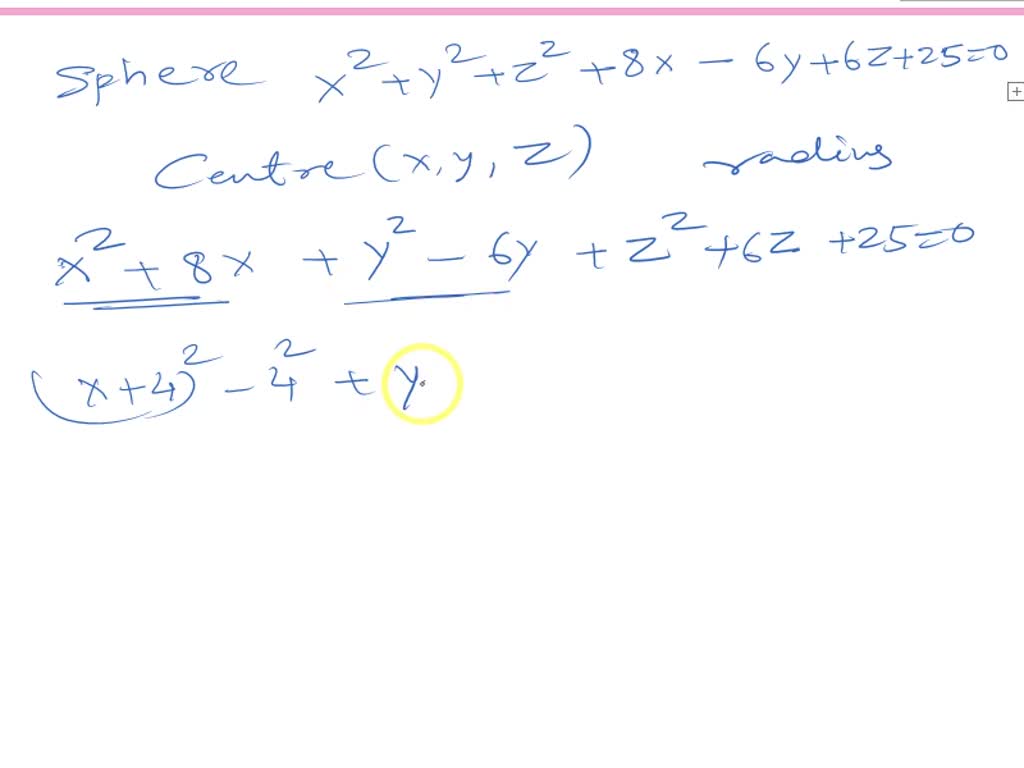 Sphere x²+y²+z²+8x-6y+6z+25=0
Centre (x,y,z) radius
x²+8x+y²-6y+z²+6z+25=0
(x+4)²-4²+y